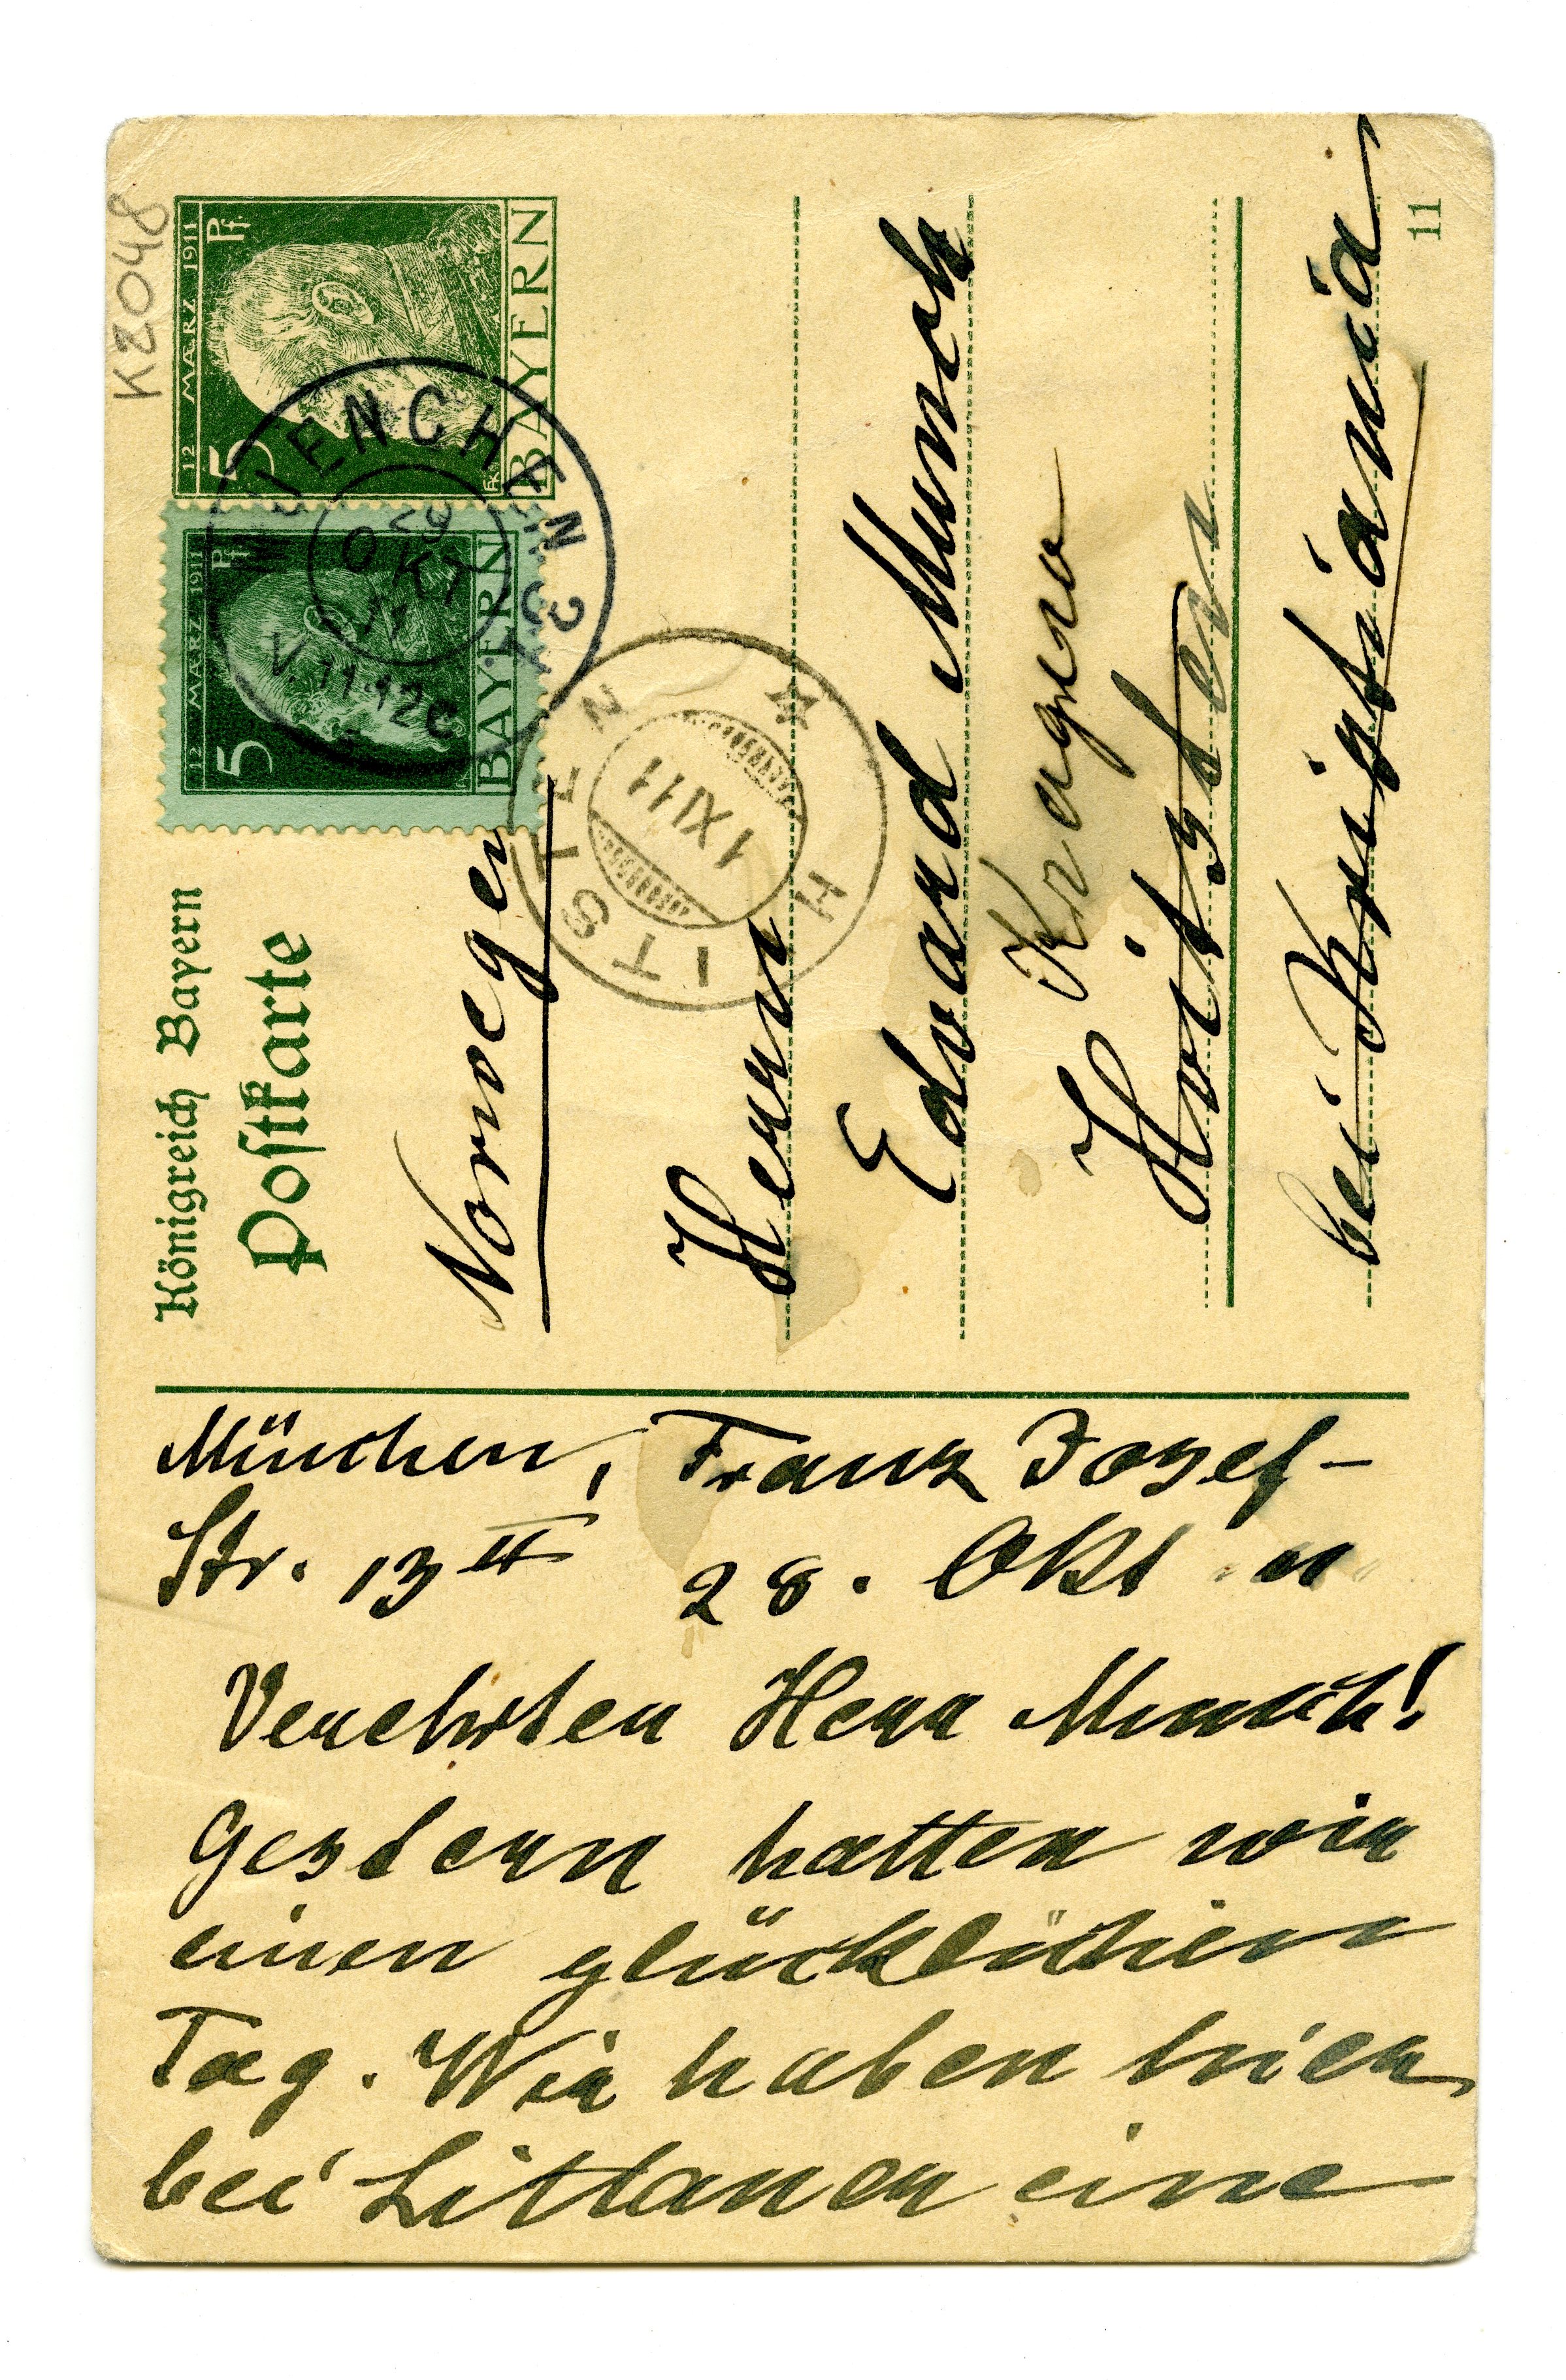 K2048
12 MÆRZ 1911
5 Pf
BAYERN
12 MÆRZ 1911
5 Pf
BAYERN
MUENCHEN 31
29
OKT
11
V. 11-12
HITSTEN
1 XI 11
Königreich Bayern
Postkarte
Norvegen
Herrn
Edvard Munch
Kragerø
Hvitsten
bei Kristiania
11
München, Franz Josef-
Str. 13 II 28. Okt 11
Verehrter Herr Munch!
Gestern hatten wir
einen glücklichen
Tag. Wir haben hier
bei Littauer eine